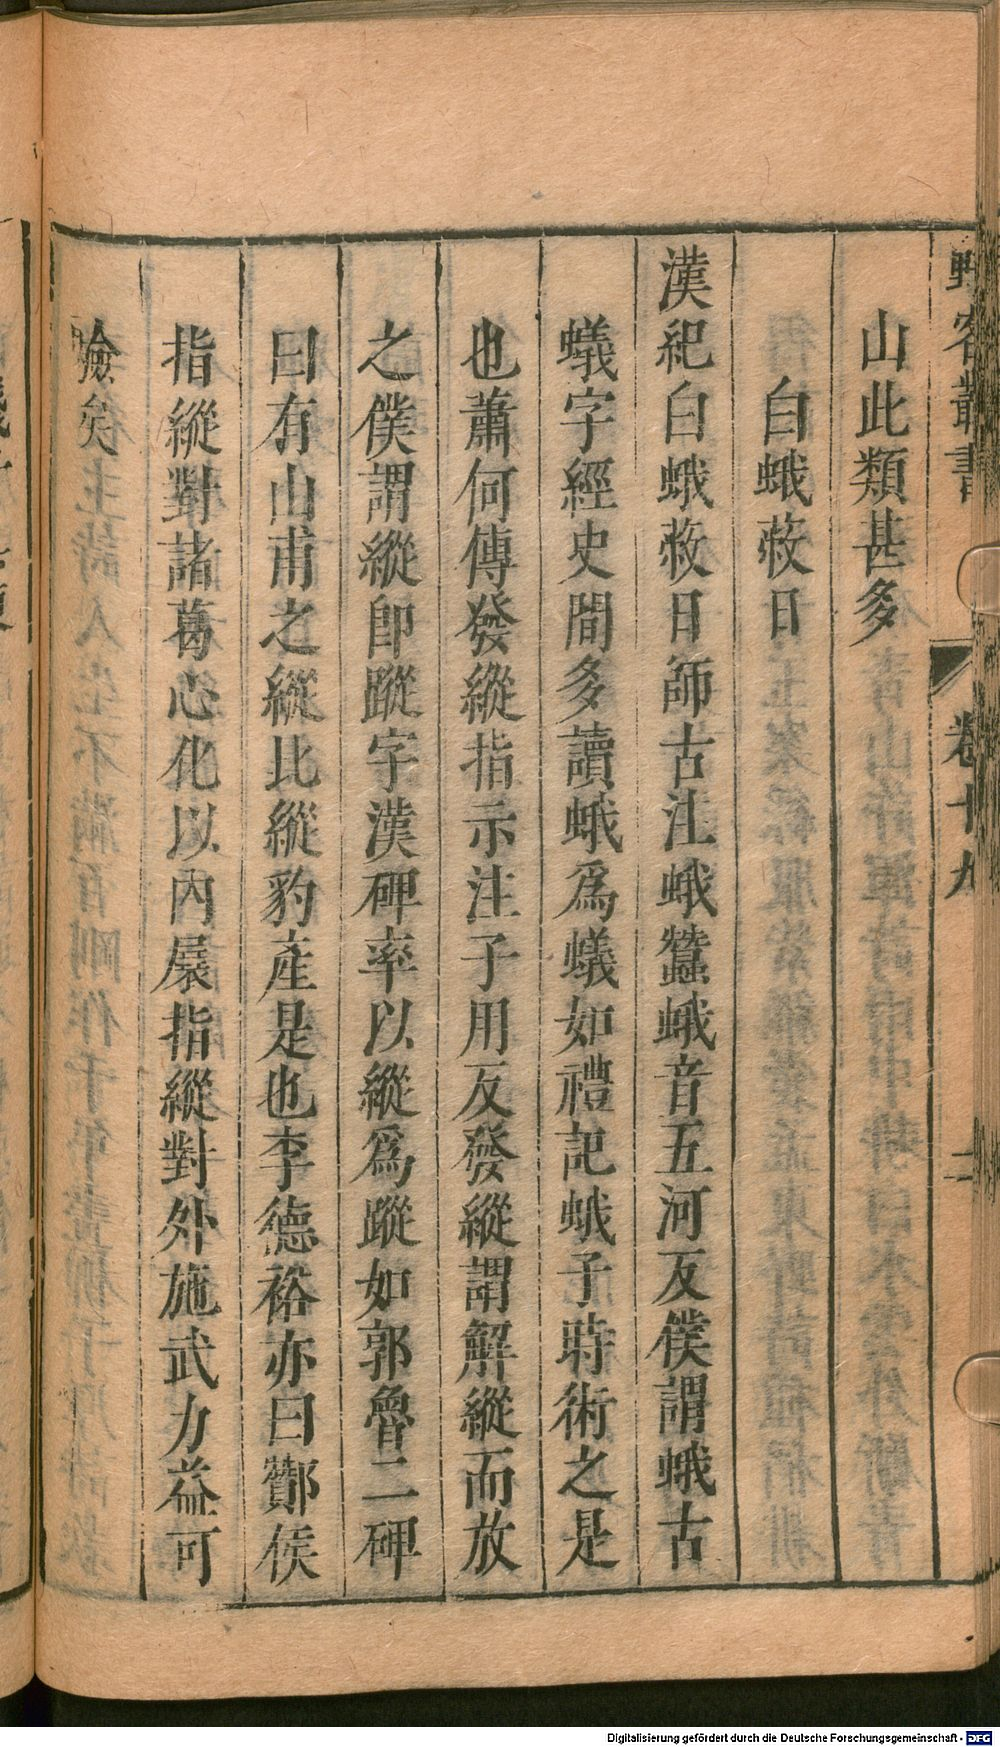 野客叢書
卷十九
二
山此類甚多
白蛾救日
漢紀白蛾救日師古注蛾蠶蛾音五河反僕謂蛾古
蟻字經史間多讀蛾爲蟻如禮記蛾子時術之是
也蕭何傳發縱指示注子用反發縱謂解縱而放
之僕謂縱卽蹤字漢碑率以縱爲蹤如郭魯二碑
曰有山甫之縱比縱豹產是也李德裕亦曰酇侯
指縱對諸葛心化以內扆指縱對外施武力益可
驗矣
Digitalisierung gefördert durch die Deutsche Forschungsgemeinschaft - DFG